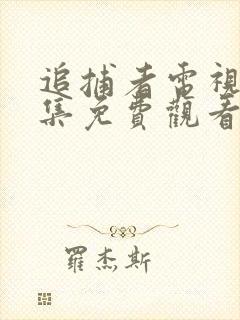 追捕者電視
集免費觀看
羅杰斯